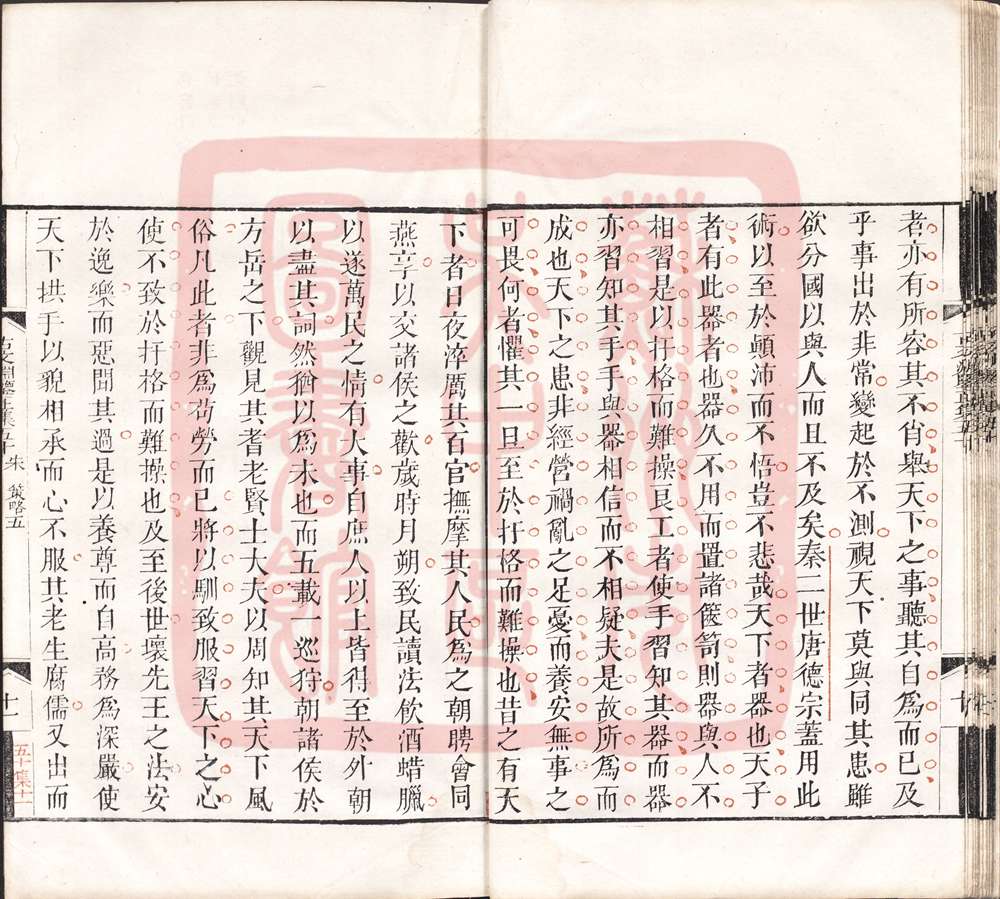 者亦有所容其不肖舉天下之事聽其自爲而已及
乎事出於非常變起於不測視天下莫與同其患雖
欲分國以與人而且不及矣秦二世唐德宗蓋用此
術以至於顛沛而不悟豈不悲哉天下者器也天子
者有此器者也器久不用而置諸篋笥則器與人不
相習是以扞格而難操良工者使手習知其器而器
亦習知其手手與器相信而不相疑夫是故所爲而
成也天下之患非經營禍亂之足憂而養安無事之
可畏何者懼其一旦至於扞格而難操也昔之有天
下者日夜淬厲其百官撫摩其人民爲之朝聘會同
燕享以交諸侯之歡歲時月朔致民讀法飲酒蜡臘
以遂萬民之情有大事自庶人以上皆得至於外朝
以盡其詞然猶以爲未也而五載一巡狩朝諸侯於
方岳之下觀見其耆老賢士大夫以周知其天下風
俗凡此者非爲苟勞而已將以馴致服習天下之心
使不致於扞格而難操也及至後世壞先王之法安
於逸樂而惡聞其過是以養尊而自高務爲深嚴使
天下拱手以貌相承而心不服其老生腐儒又出而
古文淵鑒 五十 朱 策略五
十一
五十集